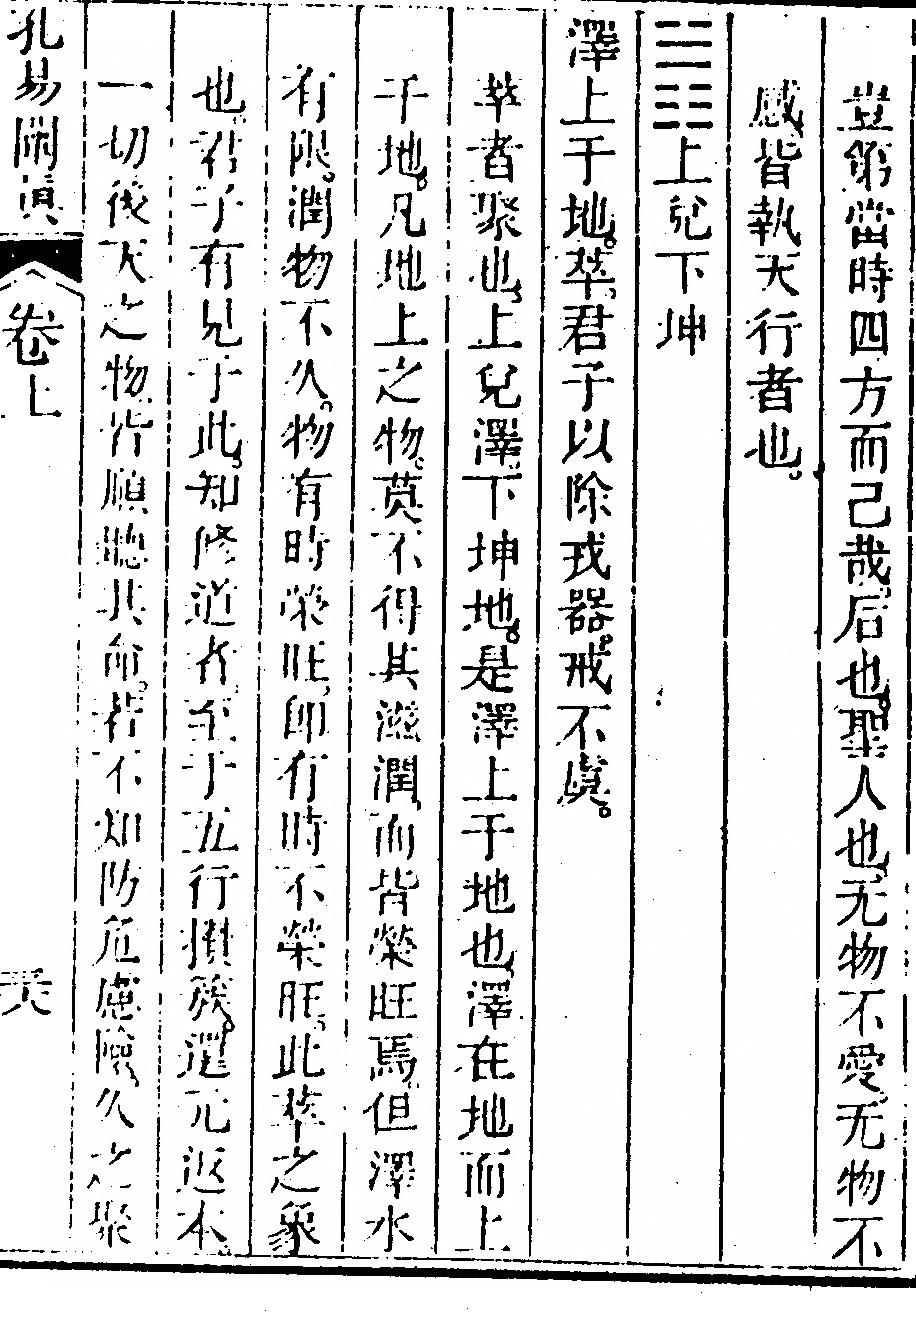 豈第當時四方而己哉后也聖人也无物不愛无物不
感皆執天行者也
䷬上兌下坤
澤上于地萃君子以除戎器戒不虞
萃者聚也上兌澤下坤地是澤上于地也澤在地而上
于地凡地上之物莫不得其滋潤而皆榮旺焉但澤水
有限潤物不久物有時榮旺卽有時不榮旺此萃之象
也君子有見于此知修道者至于五行攢簇還元返本
一切後天之物皆順聽其命若不知防危慮險久之聚
孔易闡真
卷上